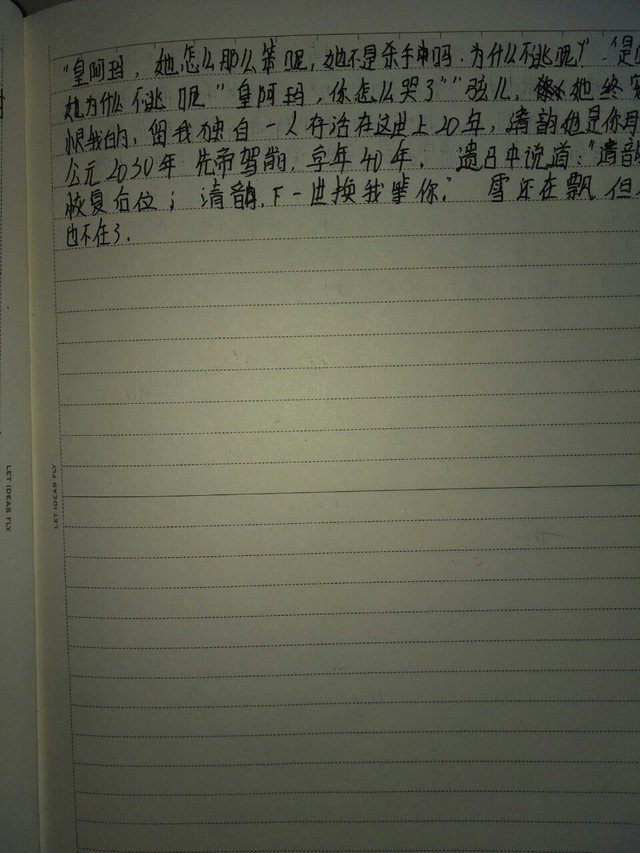 "皇阿玛，她怎么那么笨呢，她不是杀手神吗．为什么不逃呢？"是
她为什么不逃呢"皇阿玛，你怎么哭了""孩儿，她终
恨我的，留我独自一人存活在这世上20年，清韵她是你母
公元2030年 先帝驾崩，享年40年． 遗日中说道："清韵
恢复后位；清韵，下一世换我等你．" 雪还在飘 但
也不在了．
LET IDEAS FLY
LET IDEAS FLY